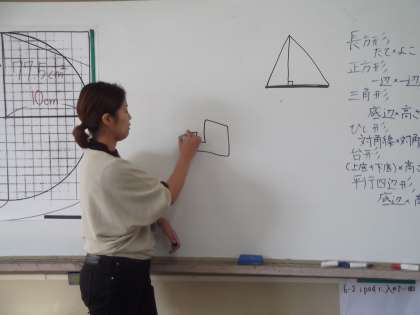 77.5cm²
10cm
長方形
たて×よこ
正方形
一辺×一辺
三角形
底辺×高さ
ひし形
対角線×対角
台形
(上底+下底)×高さ
平行四辺形
底辺×高